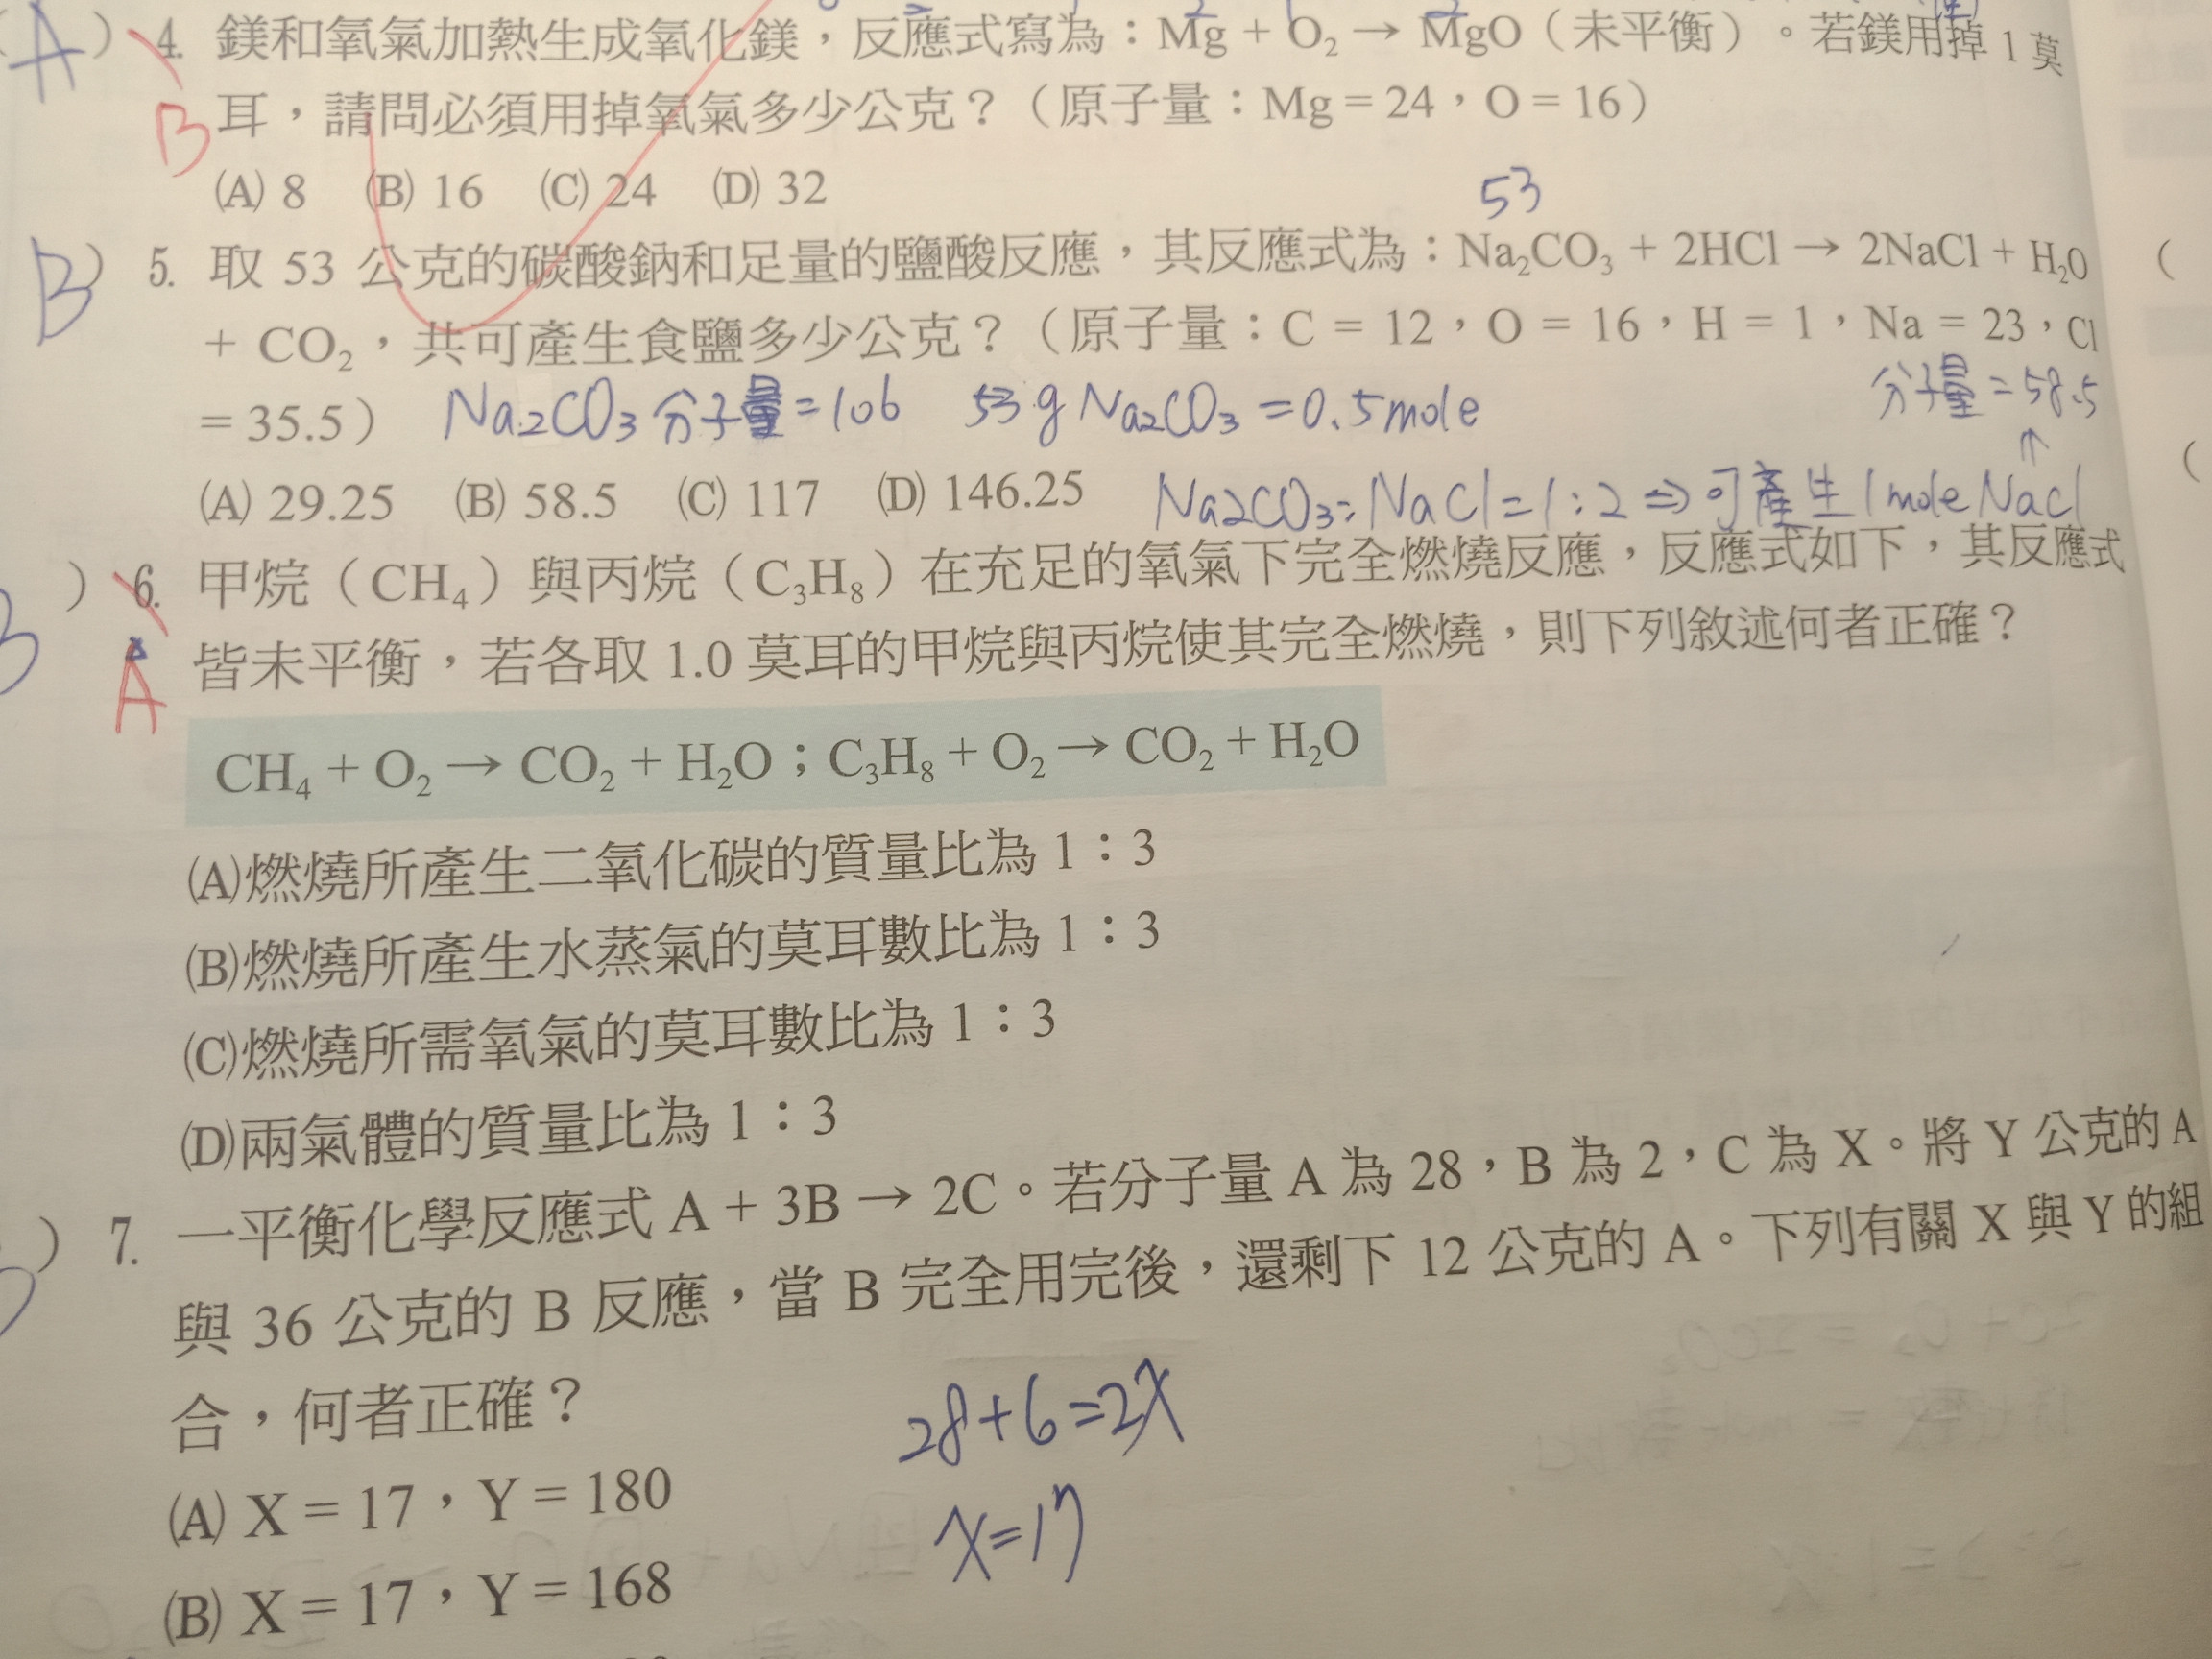 A ) 4. 鎂和氧氣加熱生成氧化鎂，反應式寫為：Mg + O₂ → MgO（未平衡）。若鎂用掉 1 莫
B 耳，請問必須用掉氧氣多少公克？（原子量：Mg = 24，O = 16）
(A) 8 (B) 16 (C) 24 (D) 32
53
B ) 5. 取 53 公克的碳酸鈉和足量的鹽酸反應，其反應式為：Na₂CO₃ + 2HCl → 2NaCl + H₂O
+ CO₂，共可產生食鹽多少公克？（原子量：C = 12，O = 16，H = 1，Na = 23，Cl
= 35.5）
Na₂CO₃ 分子量 = 106 53 g Na₂CO₃ = 0.5 mole
分子量 = 58.5
↑
(A) 29.25 (B) 58.5 (C) 117 (D) 146.25
Na₂CO₃ : NaCl = 1 : 2 ⇒ 可產生 1 mole NaCl
B ) 6. 甲烷（CH₄）與丙烷（C₃H₈）在充足的氧氣下完全燃燒反應，反應式如下，其反應式
A 皆未平衡，若各取 1.0 莫耳的甲烷與丙烷使其完全燃燒，則下列敘述何者正確？
CH₄ + O₂ → CO₂ + H₂O；C₃H₈ + O₂ → CO₂ + H₂O
(A)燃燒所產生二氧化碳的質量比為 1：3
(B)燃燒所產生水蒸氣的莫耳數比為 1：3
(C)燃燒所需氧氣的莫耳數比為 1：3
(D)兩氣體的質量比為 1：3
) 7. 一平衡化學反應式 A + 3B → 2C。若分子量 A 為 28，B 為 2，C 為 X。將 Y 公克的 A
與 36 公克的 B 反應，當 B 完全用完後，還剩下 12 公克的 A。下列有關 X 與 Y 的組
合，何者正確？
28+6=2X
X=17
(A) X = 17，Y = 180
(B) X = 17，Y = 168